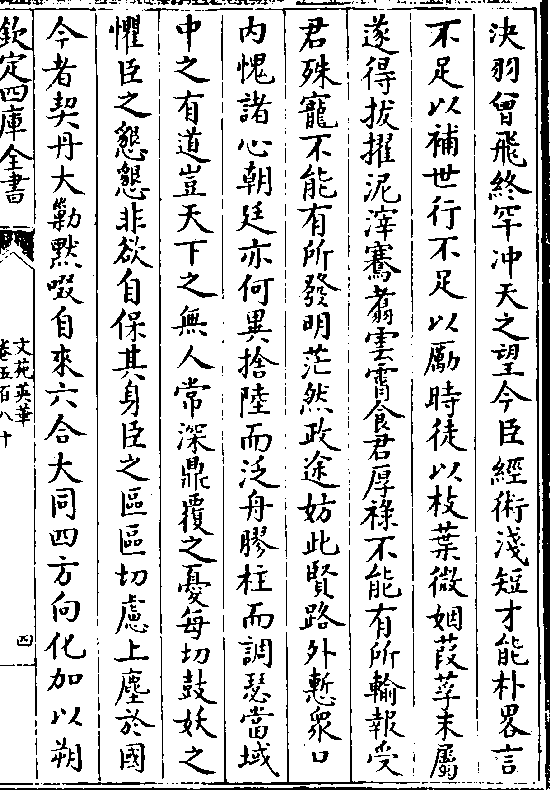 決羽曾飛終罕冲天之望今臣經術淺短才能朴畧言
不足以補世行不足以勵時徒以枝葉微姻葭莩末屬
遂得拔擢泥滓騫翥雲霄食君厚祿不能有所輸報受
君殊寵不能有所發明茫然政途妨此賢路外慙衆口
内愧諸心朝廷亦何異捨陸而泛舟膠柱而調瑟當域
中之有道豈天下之無人常深鼎覆之憂每切鼓妖之
懼臣之懇懇非欲自保其身臣之區區切慮上塵於國
今者契丹大勦默啜自來六合大同四方向化加以朔
欽定四庫全書
文苑英華
卷五百八十
四